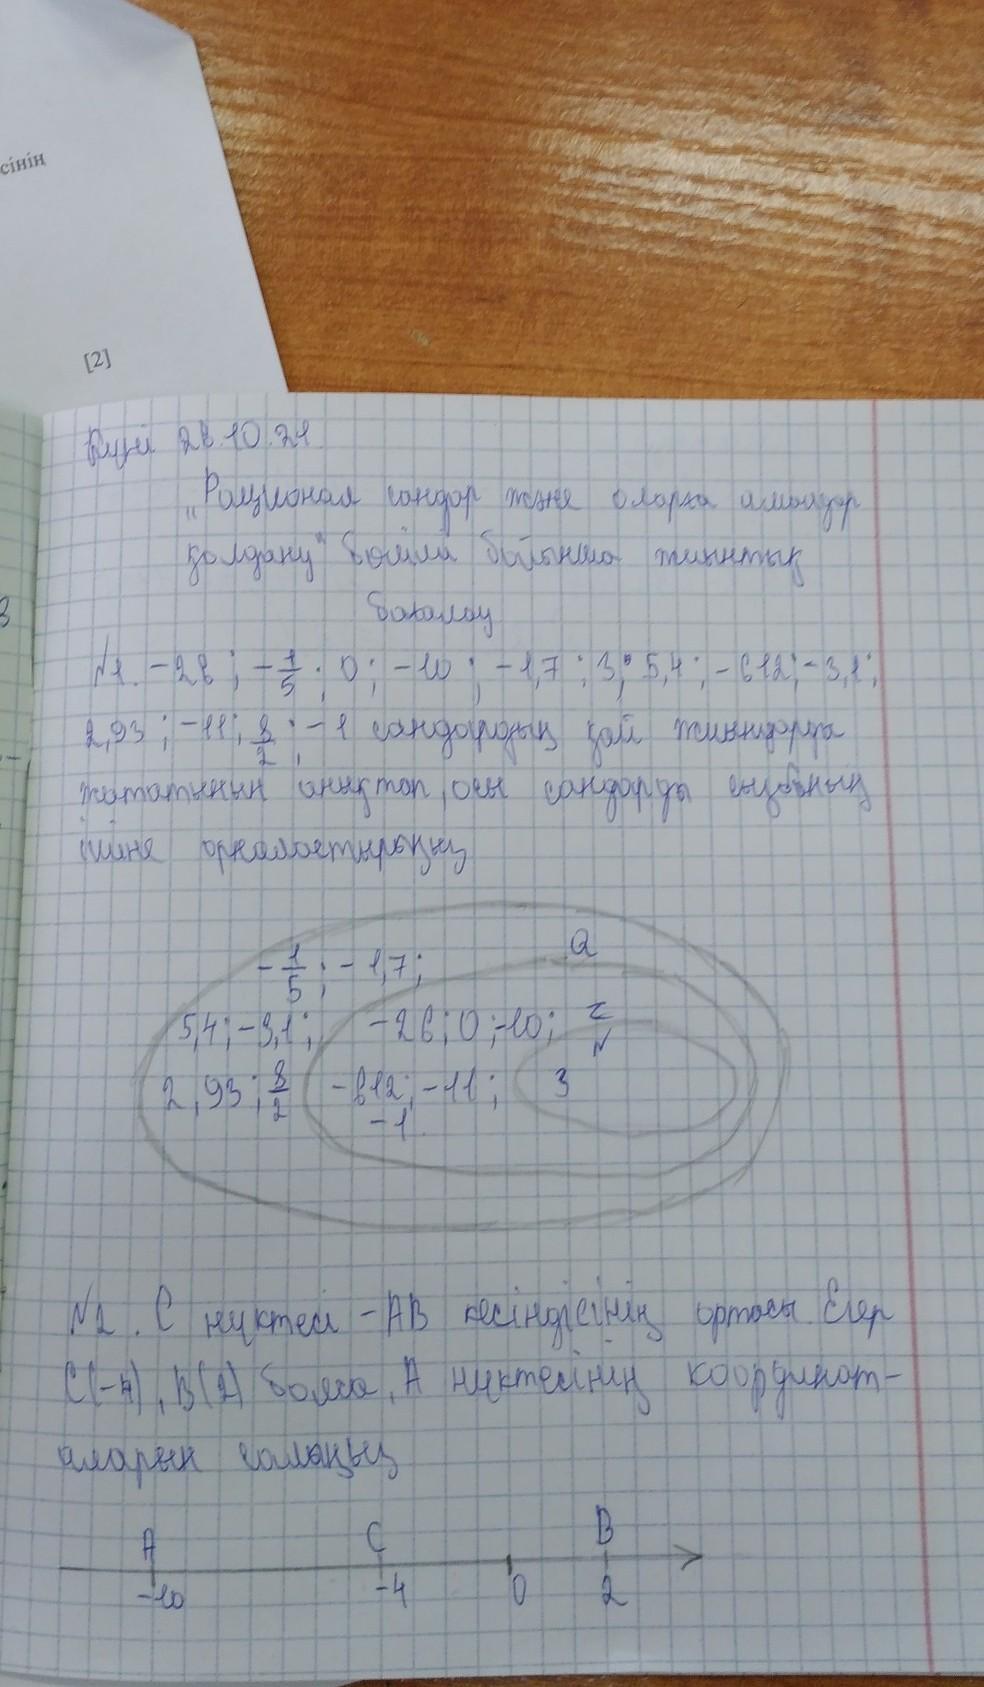 сінің
[2]
Күні 28.10.21.
"Рационал сандар және оларға амалдар
қолдану" бөлімі бойынша жиынтық
бағалау
№1. -28; -1/5; 0; -10; -1,7; 3; 5,4; -612; -3,1;
2,93; -11; 8/2; -1 сандардың қай жиындарға
жататынын анықтап, осы сандарды сызбаның
ішіне орналастырыңыз
-1/5; -1,7; Q
5,4; -3,1; -28; 0; -10; Z
N
2,93; 8/2 -612; -11; 3
-1
№2. С нүктесі - АВ кесіндісінің ортасы. Егер
С(-4), В(2) болса, А нүктесінің координат-
аларын салыңыз
А С В
-10 -4 0 2